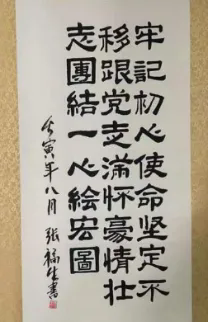 牢記初心使命坚定不
移跟党走滿怀豪情壮
志團結一心絵宏圖
壬寅年八月 張福生書